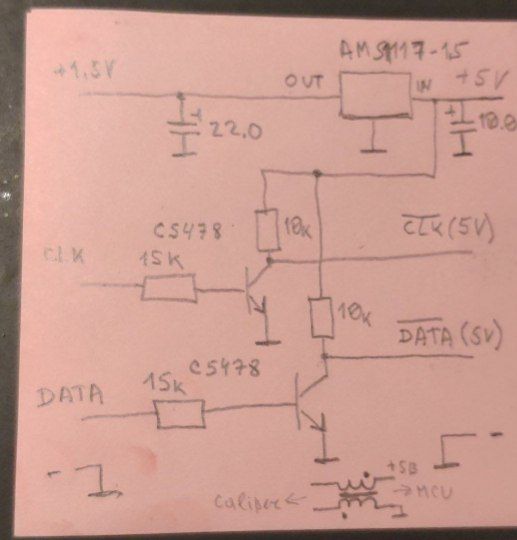 AMS1117-1.5
+1,5V
OUT
IN
+5V
+
22.0
+
10.0
C5478
10k
CLK (5V)
CLK
15k
10k
DATA (5V)
C5478
15k
DATA
-
-
+5B
Caliper ←
→ MCU